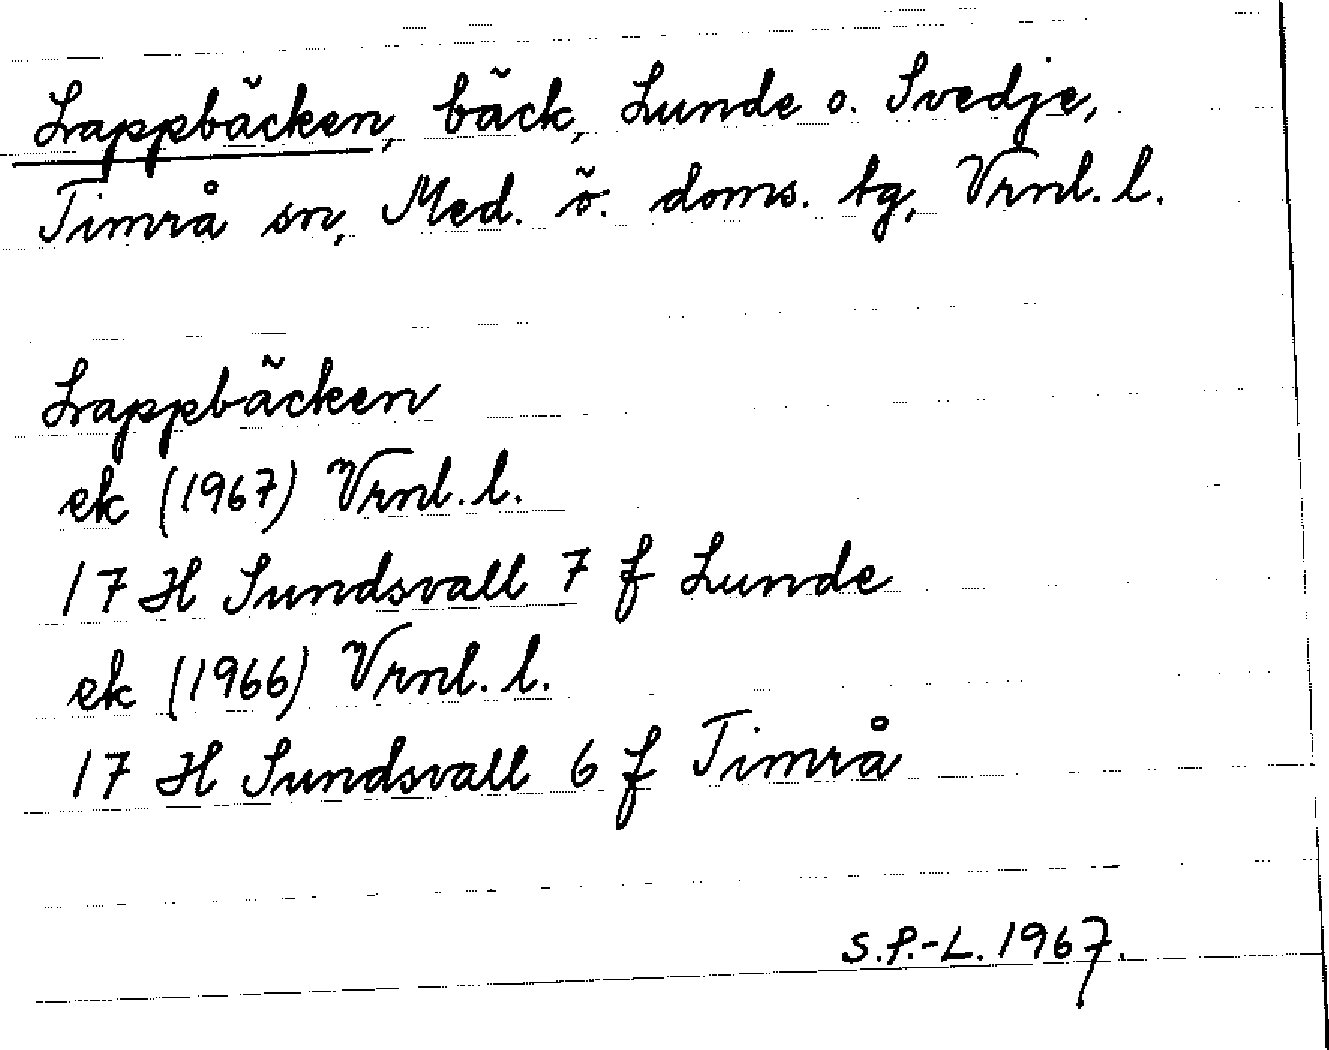 Lappbäcken, bäck, Lunde o. Svedje,
Timrå sn, Med. ö. doms. tg, Vrnl. l.
Lappbäcken
ek (1967) Vrnl. l.
17 H Sundsvall 7 f Lunde
ek (1966) Vrnl. l.
17 H Sundsvall 6 f Timrå
S.P.-L. 1967.